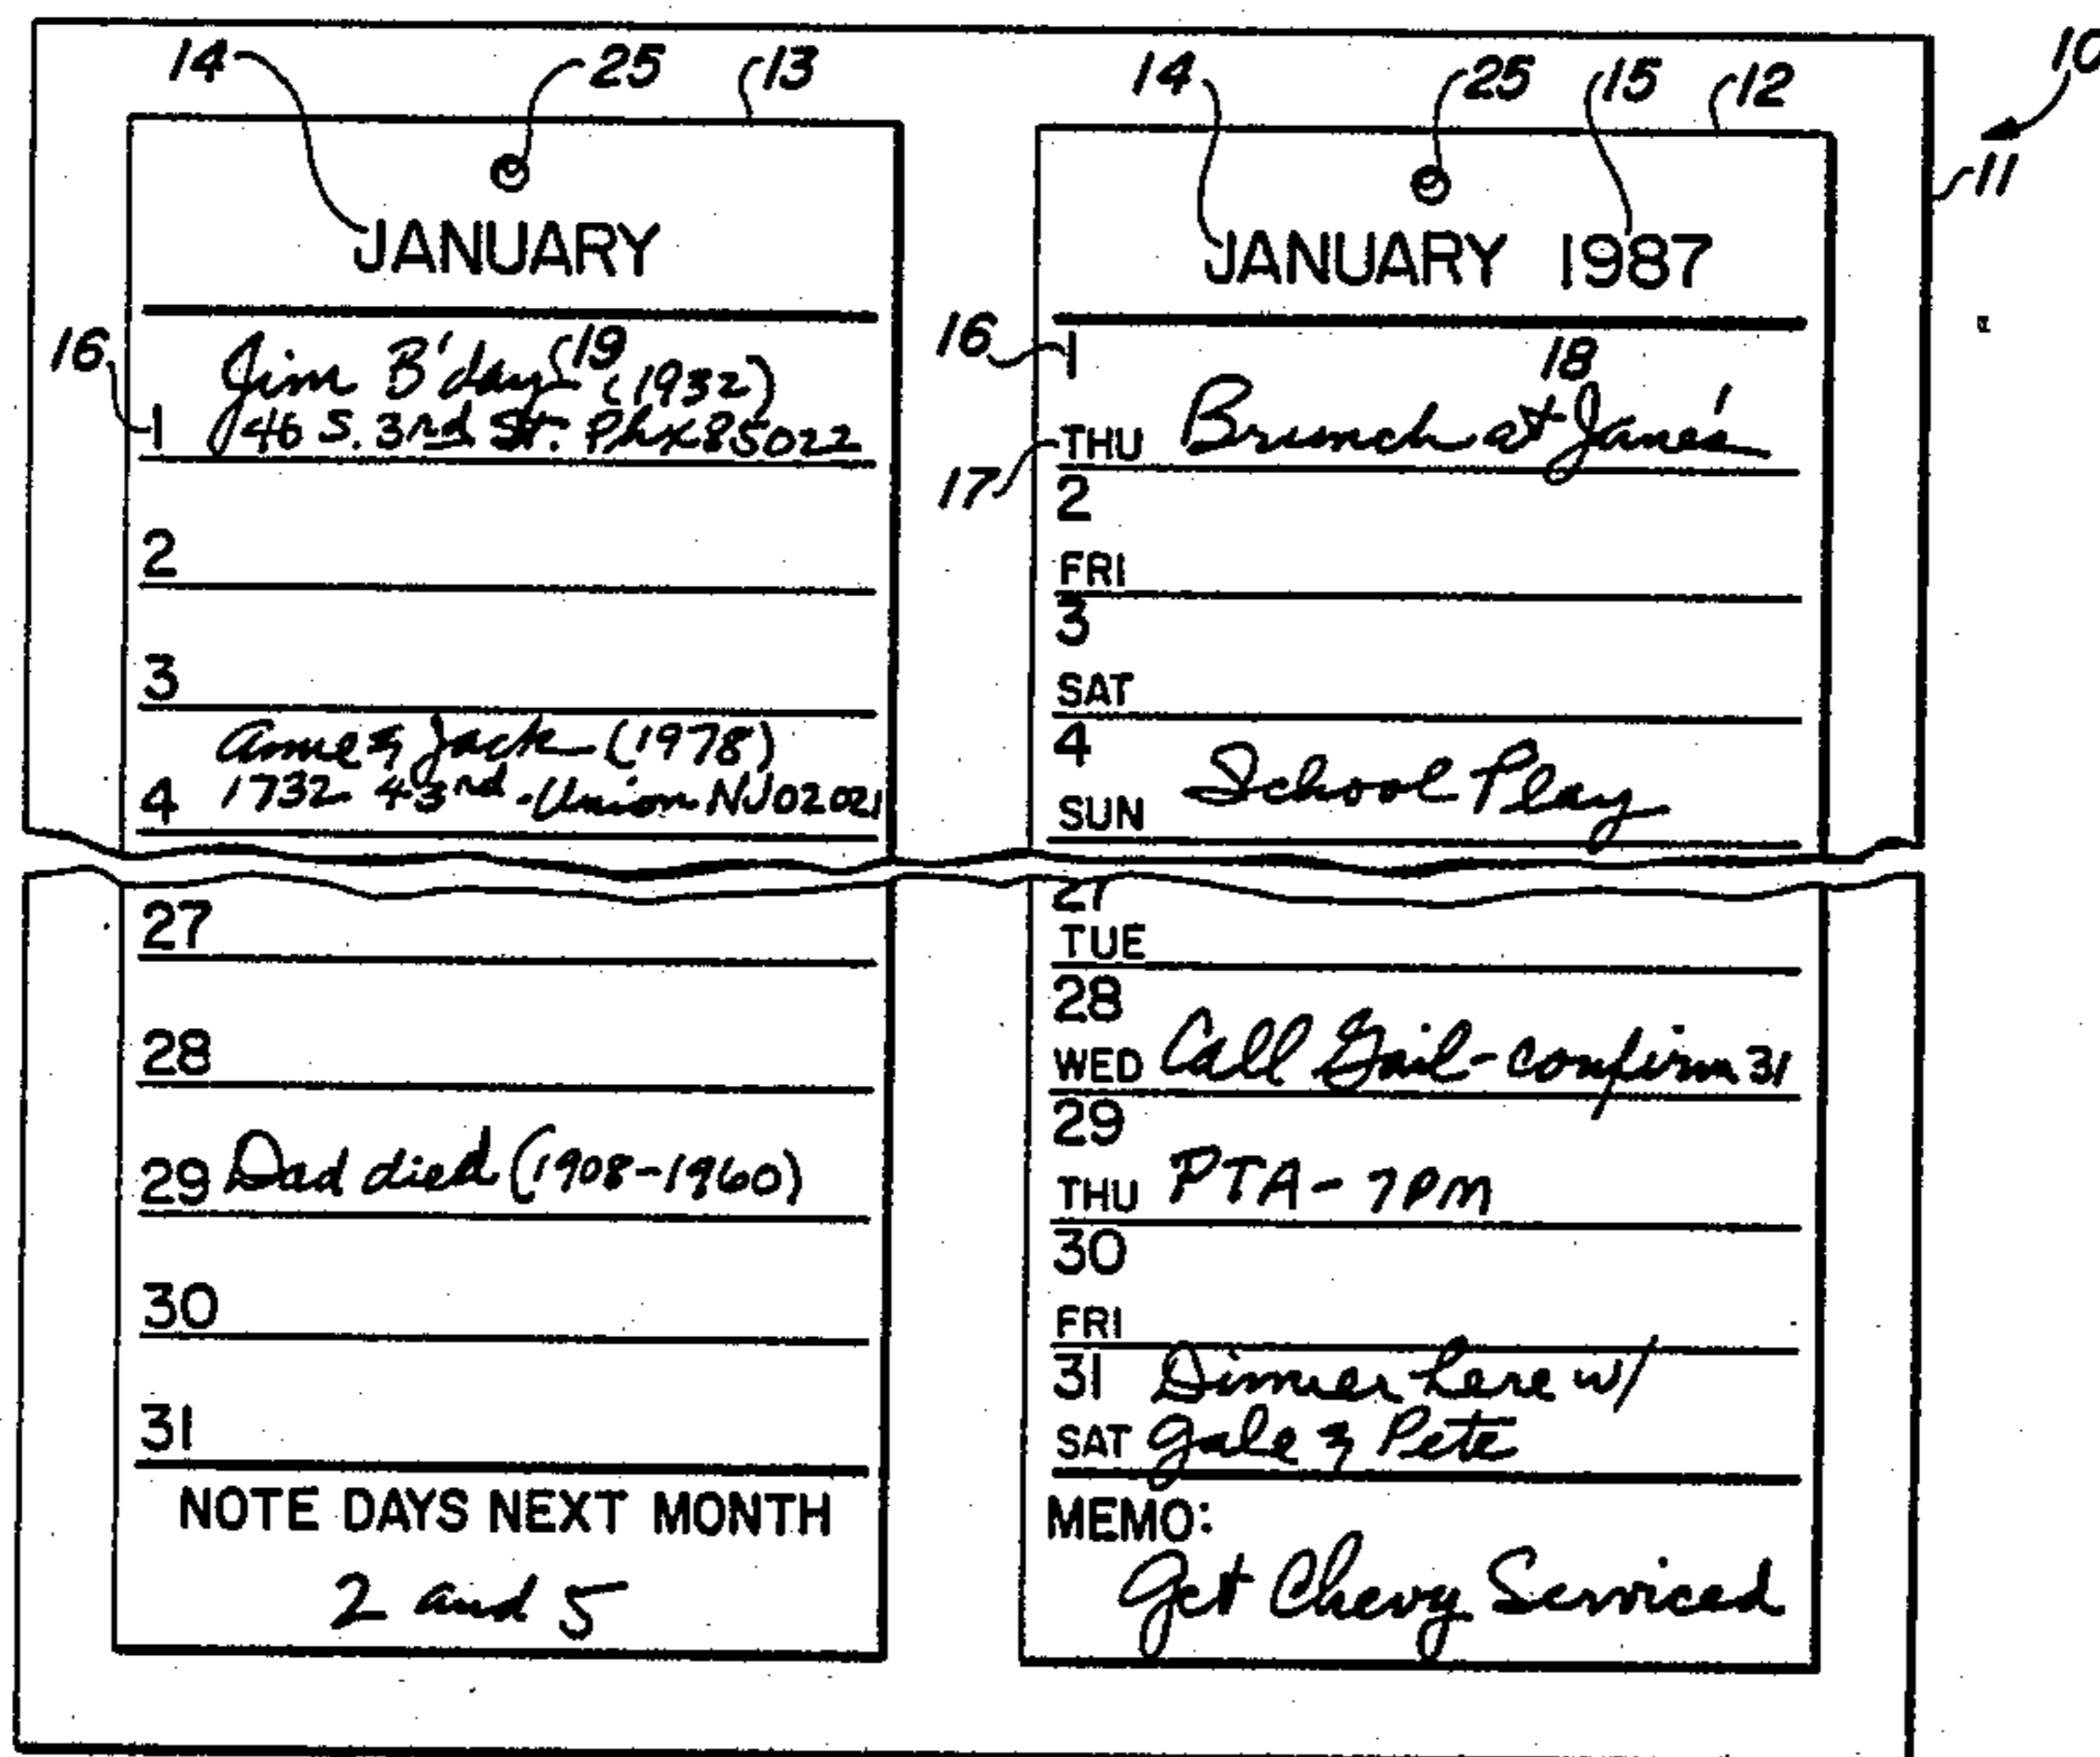 14 25 13 14 25 15 12 10
11
JANUARY
16
Jim B'day 19 (1932)
1 46 S. 3rd St. Phx 85022
2
3
Anne & Jack (1978)
4 1732 43rd - Union NJ 02021
27
28
29 Dad died (1908-1960)
30
31
NOTE DAYS NEXT MONTH
2 and 5
JANUARY 1987
16 1 18
17 THU Brunch at Jane's
2
FRI
3
SAT
4
SUN School Play
27
TUE
28
WED Call Gail - confirm 31
29
THU PTA - 7PM
30
FRI
31 Dinner here w/
SAT Gale & Pete
MEMO:
Get Chevy Serviced